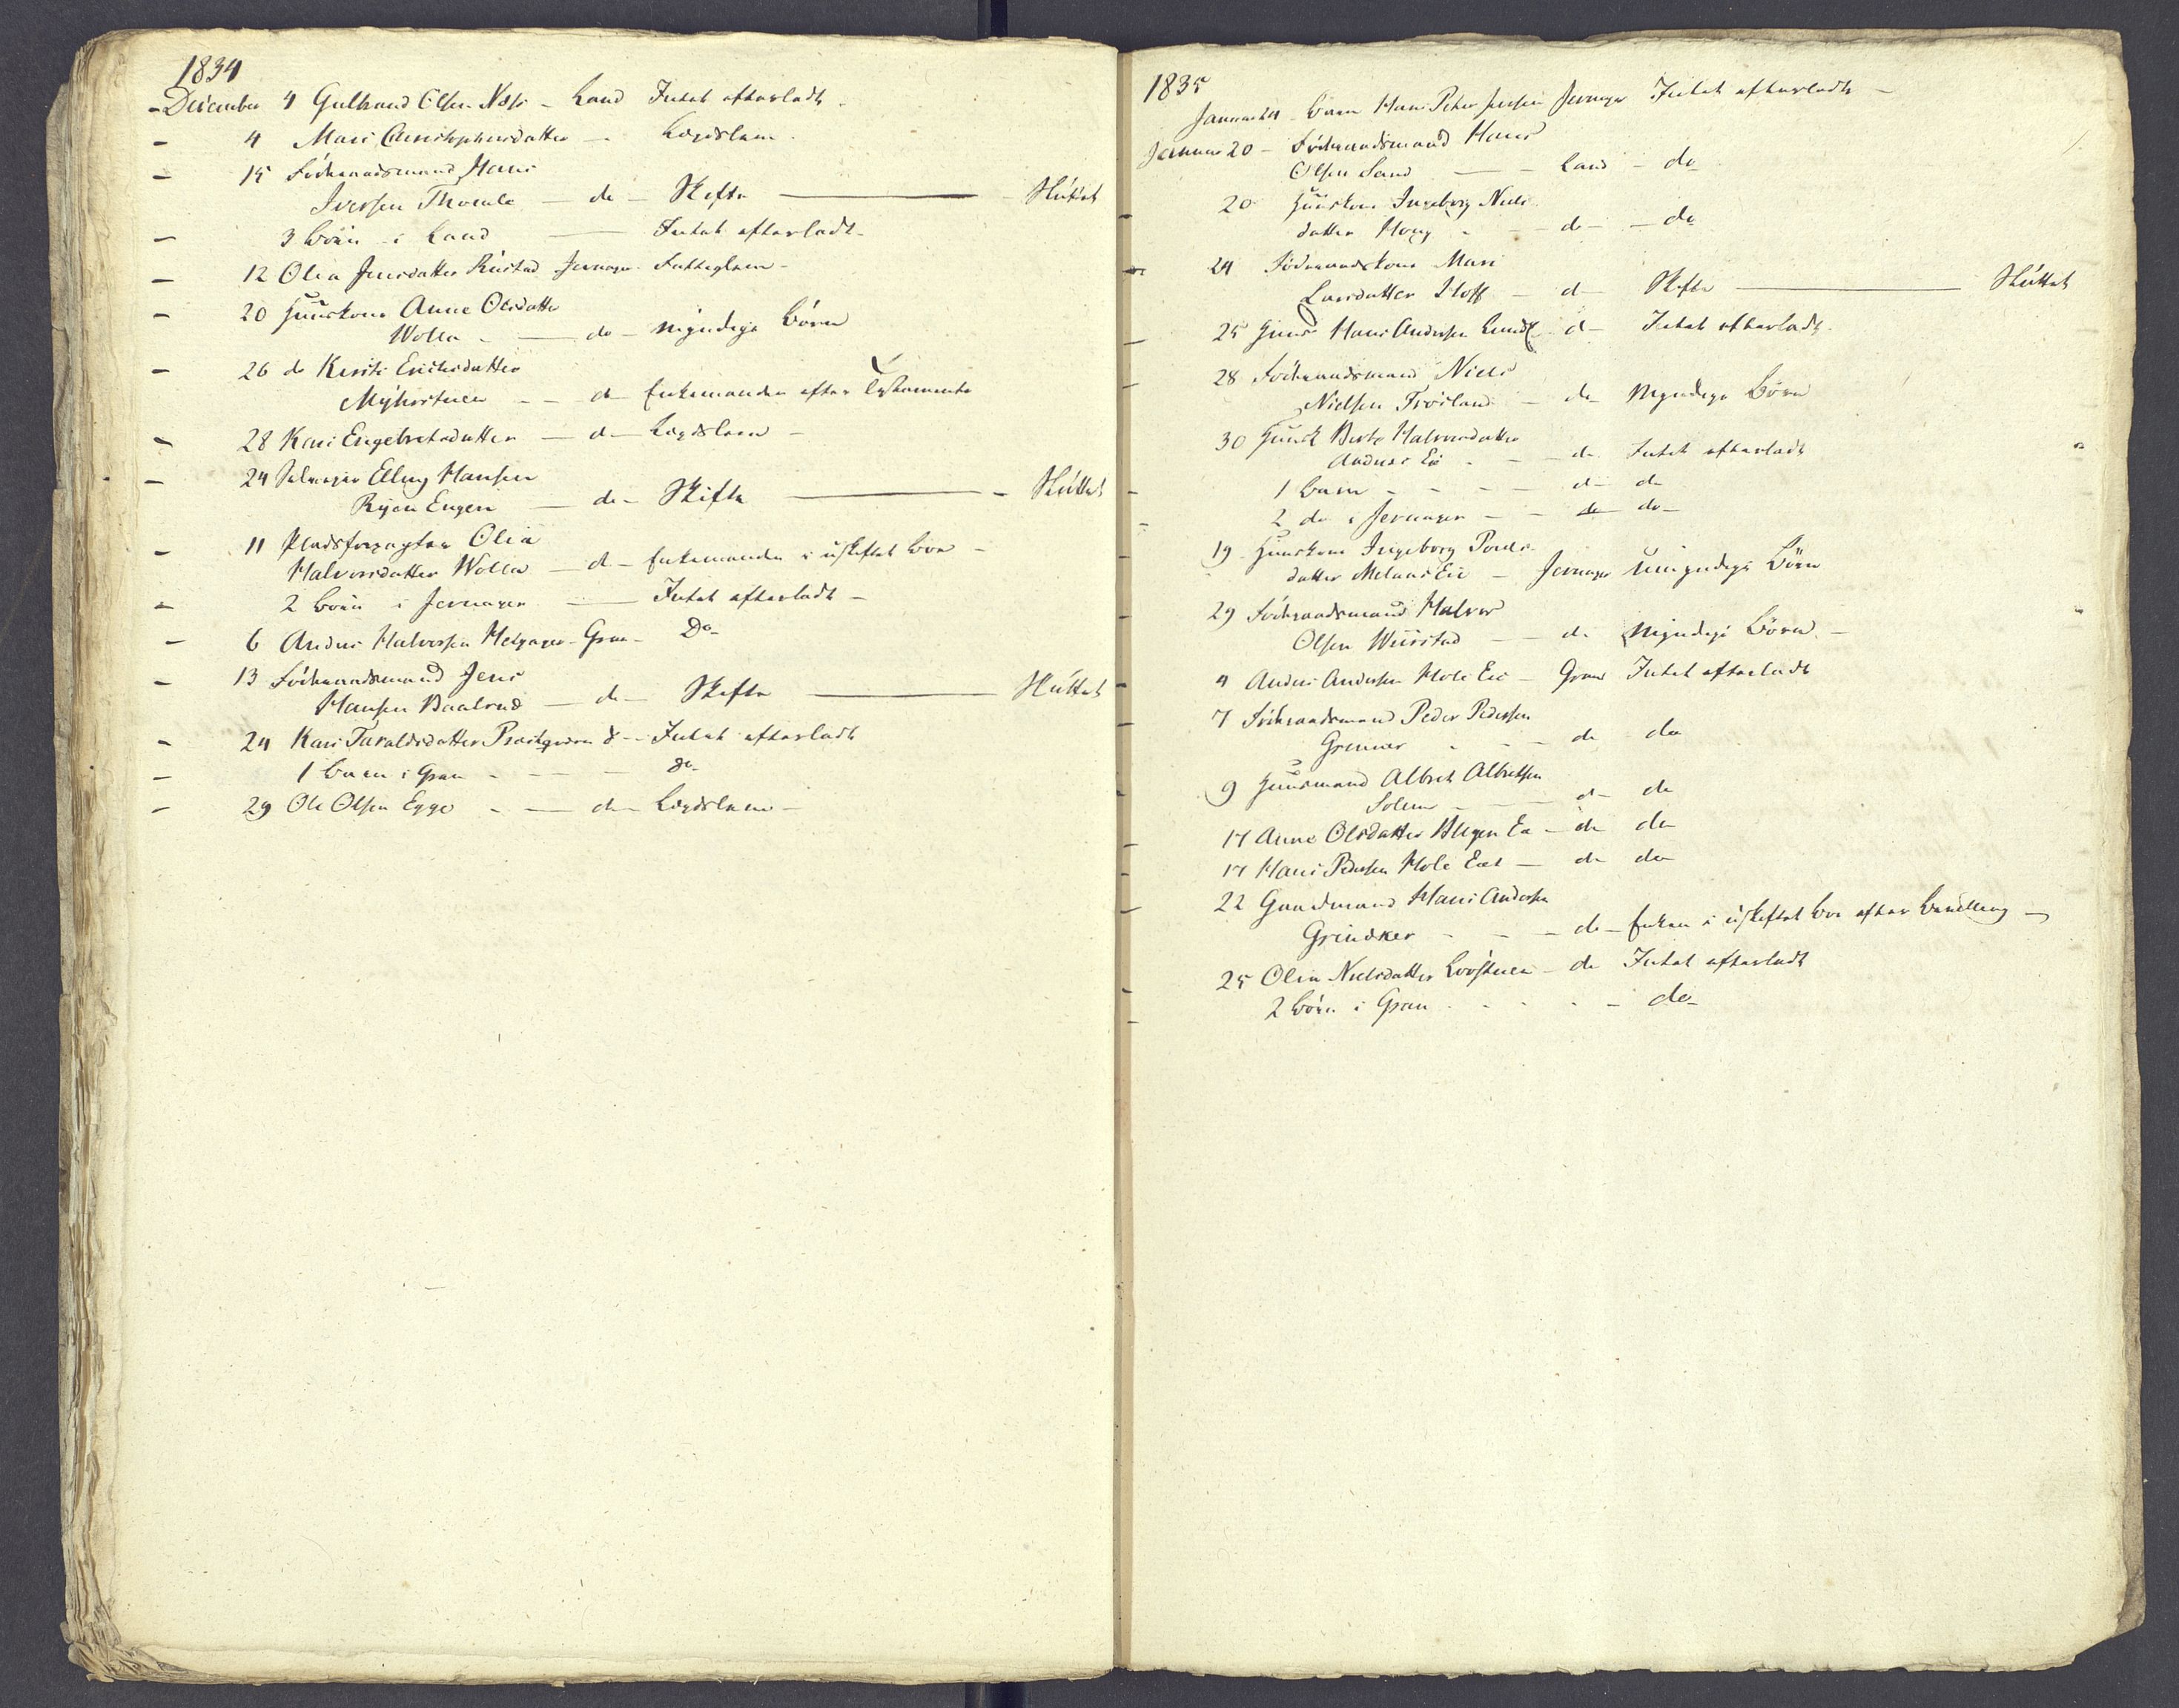 1834
December 4 Gulbrand Olsen Næss - Land Intet efterladt -
- 4 Mari Christophersdatter - - Lægdslem -
- 15 Födraadsmand Hans
Iversen Thomle - do - Skifte - Sluttet
- 3 Börn i Land - Intet efterladt -
- 12 Olea Jensdatter Rustad Jevnager - Fattiglem -
- 20 Huuskone Anne Olsdatter
Wolla - - do - Myndige Börn
- 26 do Kersti Erichsdatter
Myhrstuen - - do Enkemanden efter Testamente
- 28 Kari Engebretsdatter - do - Lægdslem -
- 24 Selveier Elling Hansen
Rijsen Engen - do - Skifte - Sluttet
- 11 Pladsforpagter Olia
Halvorsdatter Wolla - do - Enkemanden i uskiftet Boe -
- 2 Börn i Jevnager - Intet efterladt -
- 6 Anders Halvorsen Helgager - Gran - Do
- 13 Födraadsmand Jens
Hansen Baalrud - do - Skifte - Sluttet
- 24 Kari Taraldsdatter do - Intet efterladt
- 1 Barn i Gran - - - do
- 29 Ole Olsen Egge - - do - Lægdslem -
1835
Januar 4 - Barn Hans Peter Jensen Jevnager Intet efterladt -
Januar 20 - Födraadsmand Hans
Olsen Sand - - Land - do
- 20 Huuskone Ingeborg Niels
datter Houg - - do - - do
24 Födraadskone Mari
Larsdatter Hoff - do - Skifte - Sluttet
- 25 Hans Andersen Lunde do - Intet efterladt.
- 28 Födraadsmand Niels
Nielsen Fröisland - do - Myndige Börn
30 Huusk Berte Halvorsdatter
Eie - - do - Intet efterladt
- 1 Barn - - - - do - do
- 2 do i Jevnager - - do do -
19 - Huuskone Ingeborg Pouls
datter Eie - Jevnager Umyndige Börn
29 Födraadsmand Halvor
Olsen - - do Myndige Börn -
- 4 Anders Andersen Hole Eie - Gran Intet efterladt
- 7 Födraadsmand Peder Pedersen
Grinaker - - - do do
9 Huusmand Albret Albretsen
Solem - - - do - do
- 17 Anne Olsdatter - do do
- 17 Hans Pedersen Hole - do do
- 22 Gaardmand Hans Andersen
Grinaker - - - do - Enken i uskiftet Boe efter Bevilling -
- 25 Olia Nielsdatter - do Intet efterladt
- 2 Börn i Gran - - - - do -